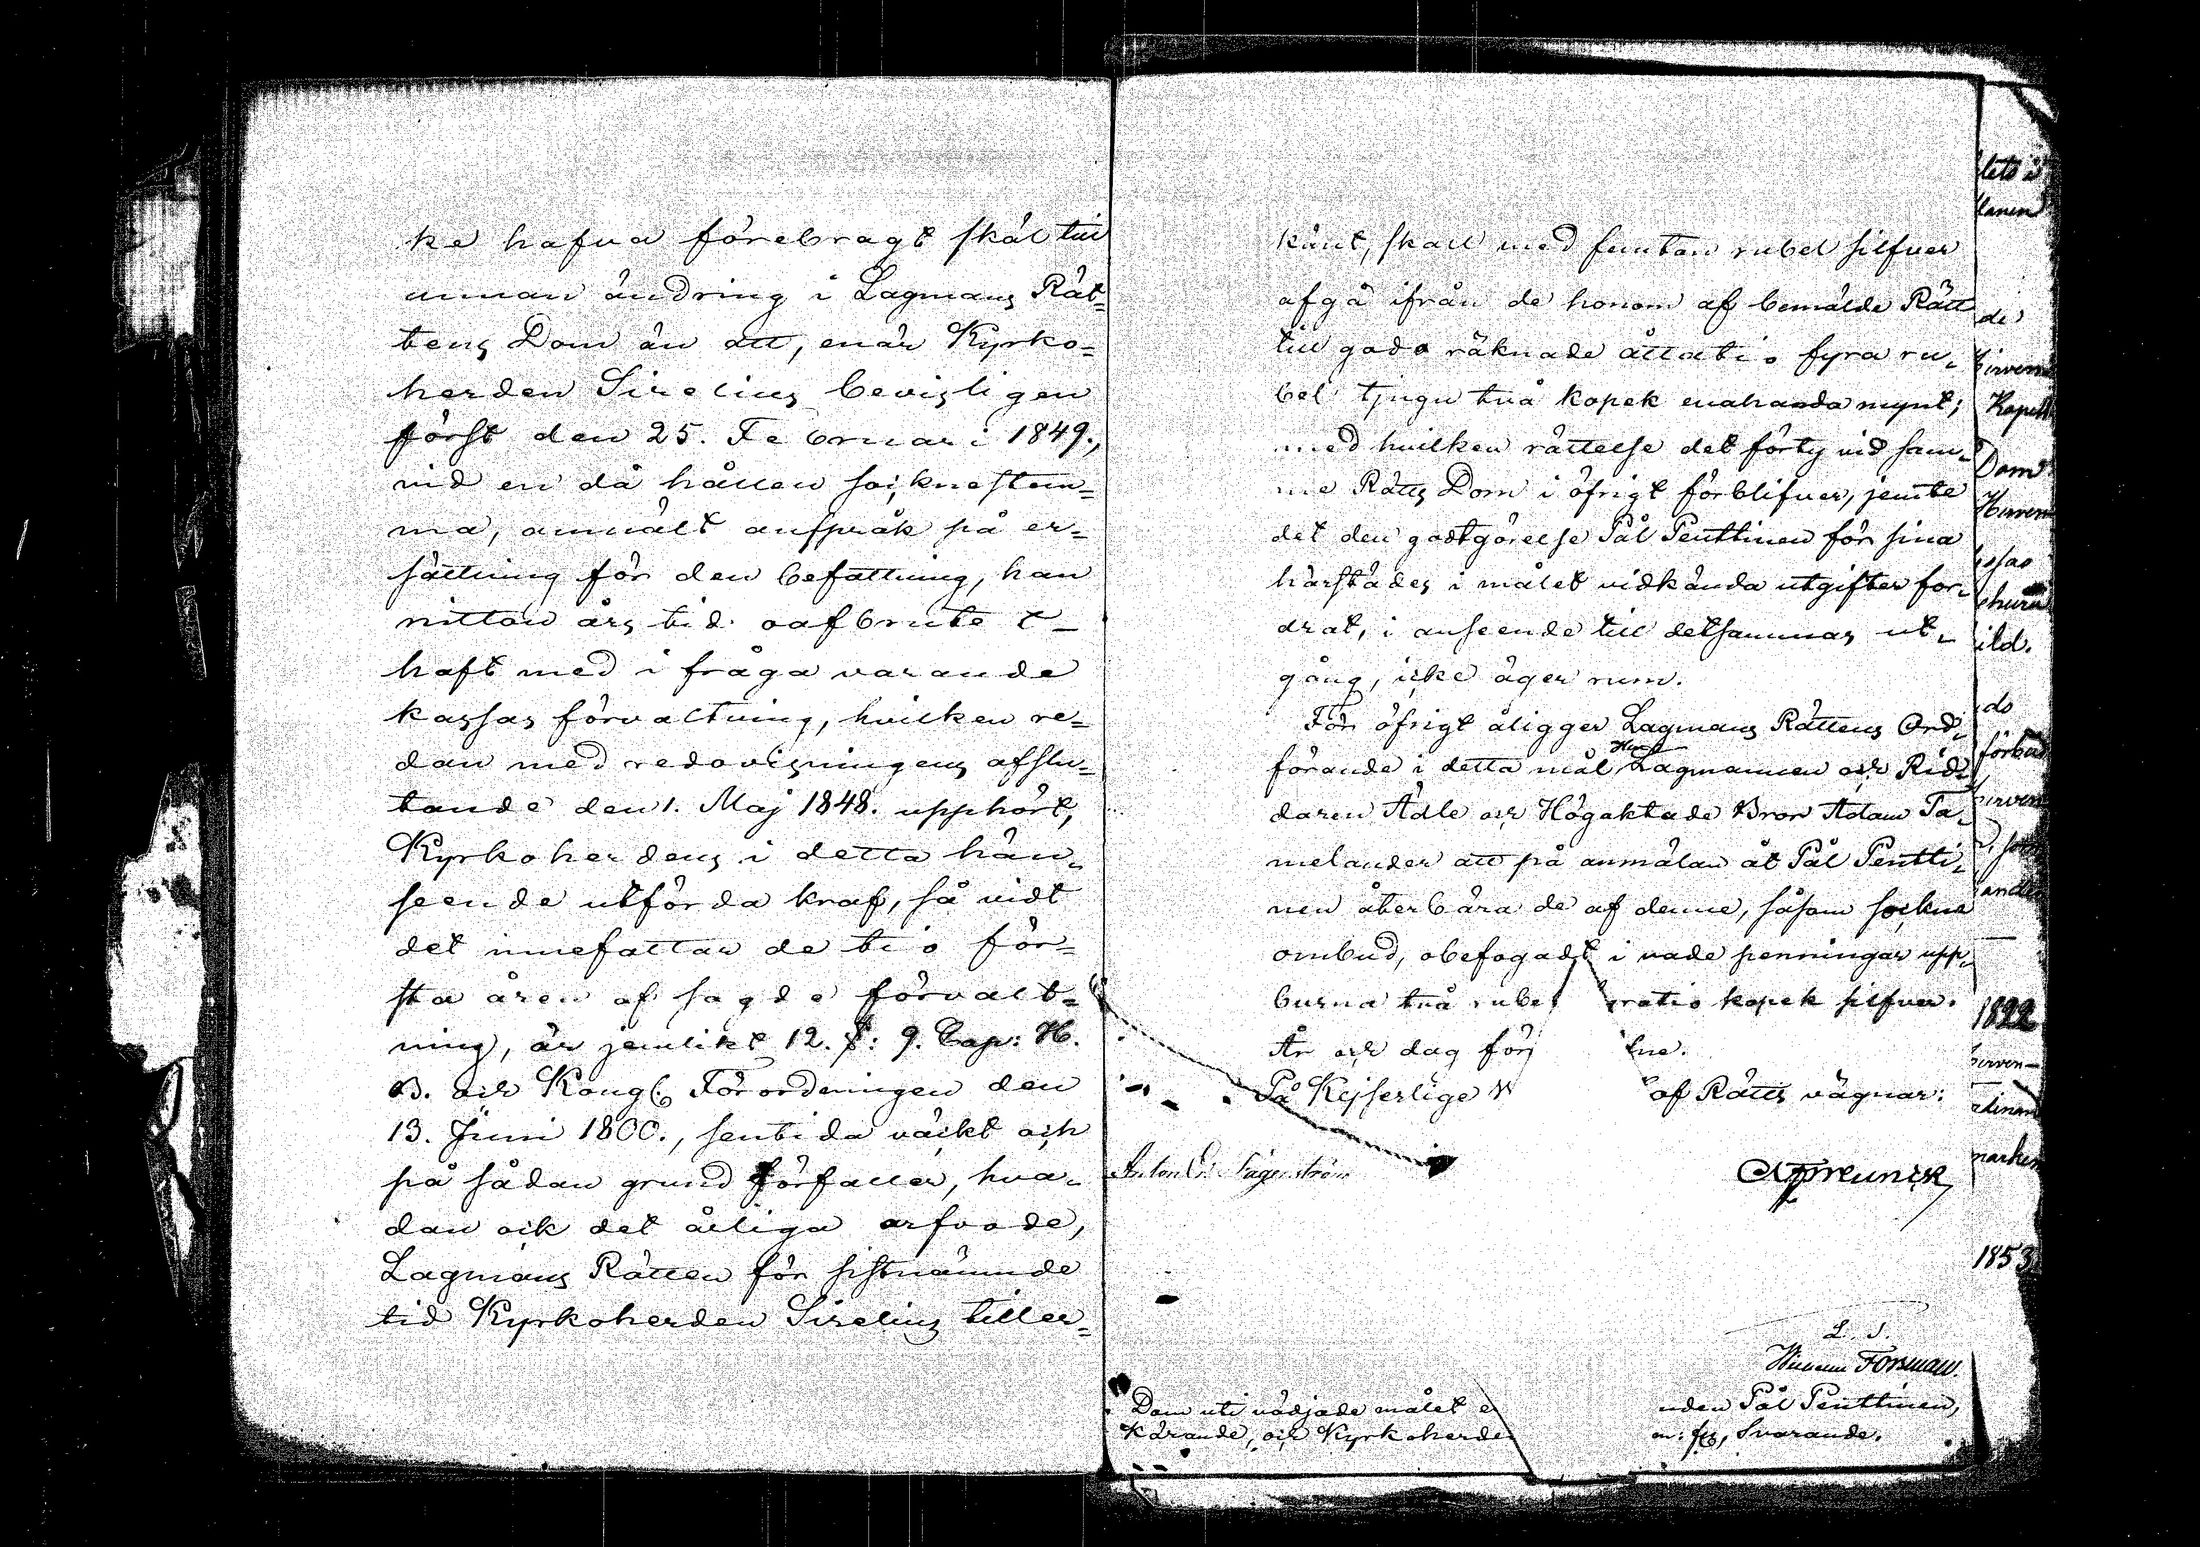 ke hafva förebragt skäl till
annan ändring i Lagmans Rät=
tens Dom än att, enär Kyrko=
herden Sirelius bevisligen
först den 25. Februari 1849.,
vid en då hållen sockneståm=
ma, anmält anspråk på er=
sättning för den befattning, han
nitton års tid oafbrutet
haft med i fråga varande
kassas förvaltning, hvilken re=
dan med redovisningens afslu=
tande den 1. Maj 1848. upphört,
Kyrkoherdens i detta hän=
seende utförda kraf, så vidt
det innefattar de tio för=
sta åren af sagde förvalt=
ning, är jemlikt 12. §: 9. Cap: H.
B. och Kongl. Förordningen den
13. Juni 1800., sentida väckt och
på sådan grund förfaller, hva=
dan ock det årliga arfvode,
Lagmans Rätten för sistnämnde
tid Kyrkoherden Sirelius tiller=
känt, skall med femton rubel silfver
afgå ifrån de honom af bemälde Rätt
till godo räknade åttatio fyra ru=
bel tjugu två kopek enahanda mynt;
med hvilken rättelse det förty vid sam=
me Rätts Dom i öfrigt förblifver, jemte
det den godtgörelse Pål Penttinen för sina
härstädes i målet vidkända utgifter for=
drat, i anseende till detsammas ut=
gång, icke äger rum.
För öfrigt åligger Lagmans Rättens Ord=
förande i detta mål Herr Lagmannen och Rid=
daren Ädle och Högaktade Bror Adam Ta=
melander att på anmälan åt Pål Pentti=
nen återbära de af denne, såsom sockne
ombud, obefogadt i vade penningar upp=
burna två rube ratio kopek silfver.
År och dag för ne.
På Kejserlige af Rätts vägnar:
Anton Fagerström
L. S.
Forsman.
Dom uti vädjade målet e nden Pål Penttinen,
Kärande, och Kyrkoherde Svarande.
de
Kapell
Dom
ild.
förbud
1822
1853